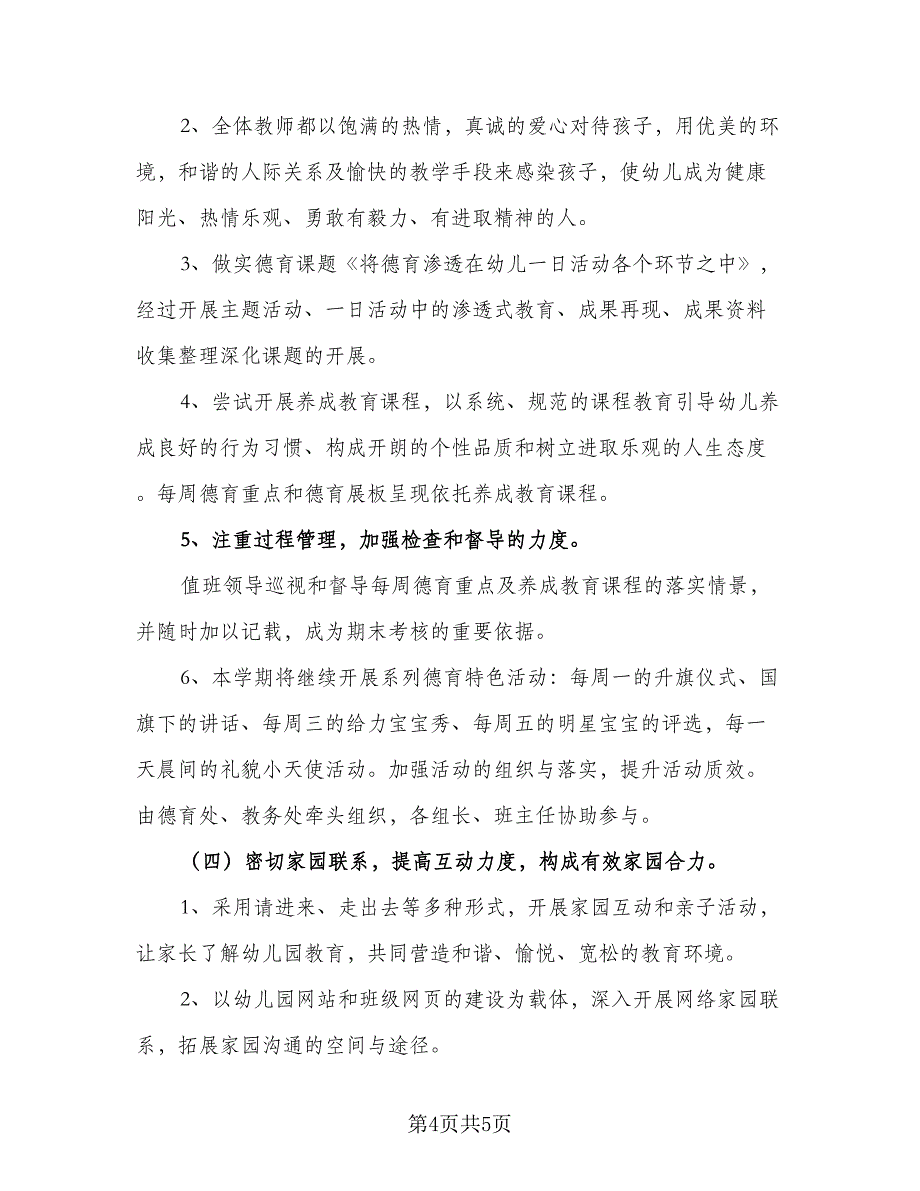 2、全体教师都以饱满的热情，真诚的爱心对待孩子，用优美的环
境，和谐的人际关系及愉快的教学手段来感染孩子，使幼儿成为健康
阳光、热情乐观、勇敢有毅力、有进取精神的人。
3、做实德育课题《将德育渗透在幼儿一日活动各个环节之中》，
经过开展主题活动、一日活动中的渗透式教育、成果再现、成果资料
收集整理深化课题的开展。
4、尝试开展养成教育课程，以系统、规范的课程教育引导幼儿养
成良好的行为习惯、构成开朗的个性品质和树立进取乐观的人生态度
。每周德育重点和德育展板呈现依托养成教育课程。
5、注重过程管理，加强检查和督导的力度。
值班领导巡视和督导每周德育重点及养成教育课程的落实情景，
并随时加以记载，成为期末考核的重要依据。
6、本学期将继续开展系列德育特色活动：每周一的升旗仪式、国
旗下的讲话、每周三的给力宝宝秀、每周五的明星宝宝的评选，每一
天晨间的礼貌小天使活动。加强活动的组织与落实，提升活动质效。
由德育处、教务处牵头组织，各组长、班主任协助参与。
（四）密切家园联系，提高互动力度，构成有效家园合力。
1、采用请进来、走出去等多种形式，开展家园互动和亲子活动，
让家长了解幼儿园教育，共同营造和谐、愉悦、宽松的教育环境。
2、以幼儿园网站和班级网页的建设为载体，深入开展网络家园联
系，拓展家园沟通的空间与途径。
第4页共5页